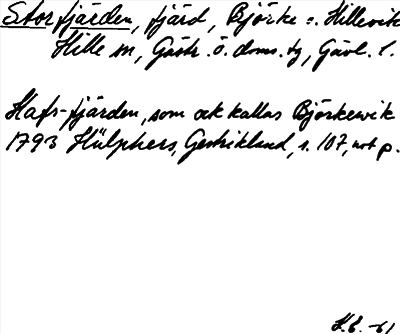 Storfjärden, fjärd, Björke o. Hillevik
Hille sn, Gästr. ö. doms. tg, Gävl. l.
Hafs-fjärden, som ock kallas Björkewik
1793 Hülphers, Gestrikland, s. 107, not p.
H.E. -61